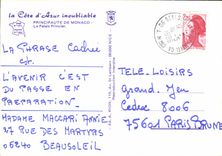 La Côte d'Azur inoubliable
PRINCIPAUTÉ DE MONACO
Le Palais Princier
LA PHRASE Cachée
est.
L'AVENIR C'EST
DU PASSE EN
PREPARATION
MADAME MACCARI ANNIE
27 RUE DES MARTYRS
06240 BEAUSOLEIL
TELE-LOISIRS
Grand-Jeu
Cedex 8006
75601 PARIS BRUNE